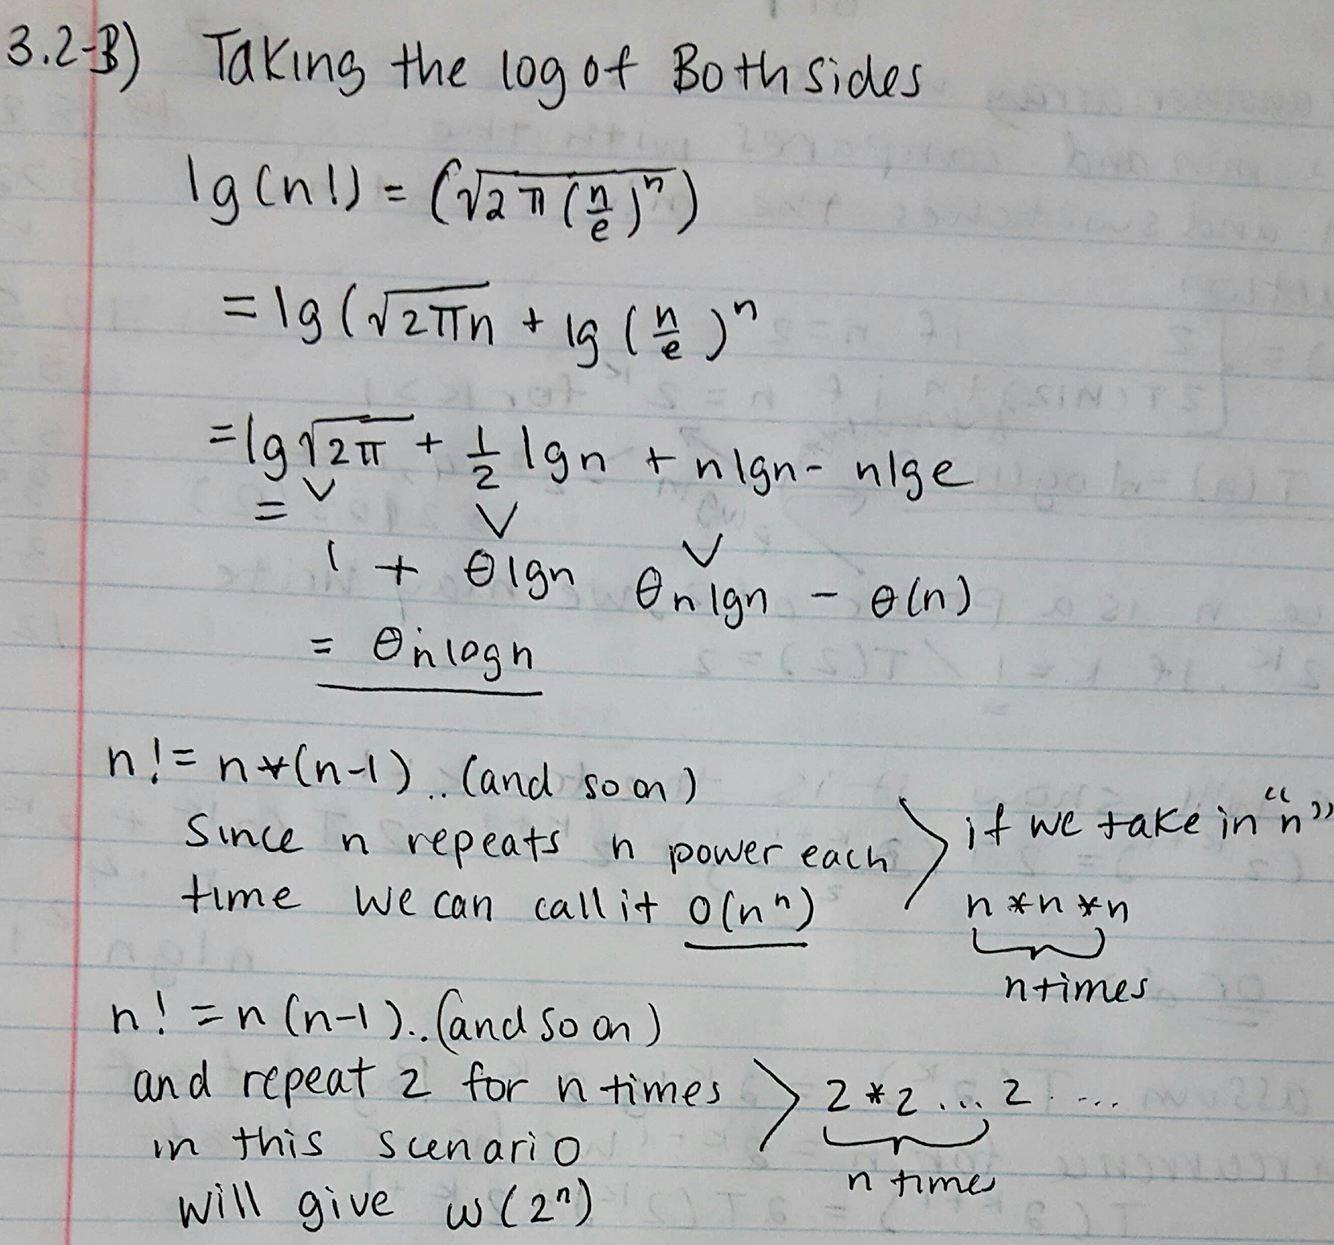 3.2-3) Taking the log of Both sides
lg(n!) = (√2π(n/e)^n)
= lg(√2πn + lg(n/e)^n
= lg√2π + 1/2 lgn + nlgn - nlge
=
1 + θlgn θnlgn - θ(n)
= θnlogn
n! = n*(n-1)..(and so on)
Since n repeats n power each
time we can call it o(n^n)
if we take in "n"
n*n*n
n times
n! = n(n-1)..(and so on)
and repeat 2 for n times
in this scenario
will give ω(2^n)
2*2...2....
n times